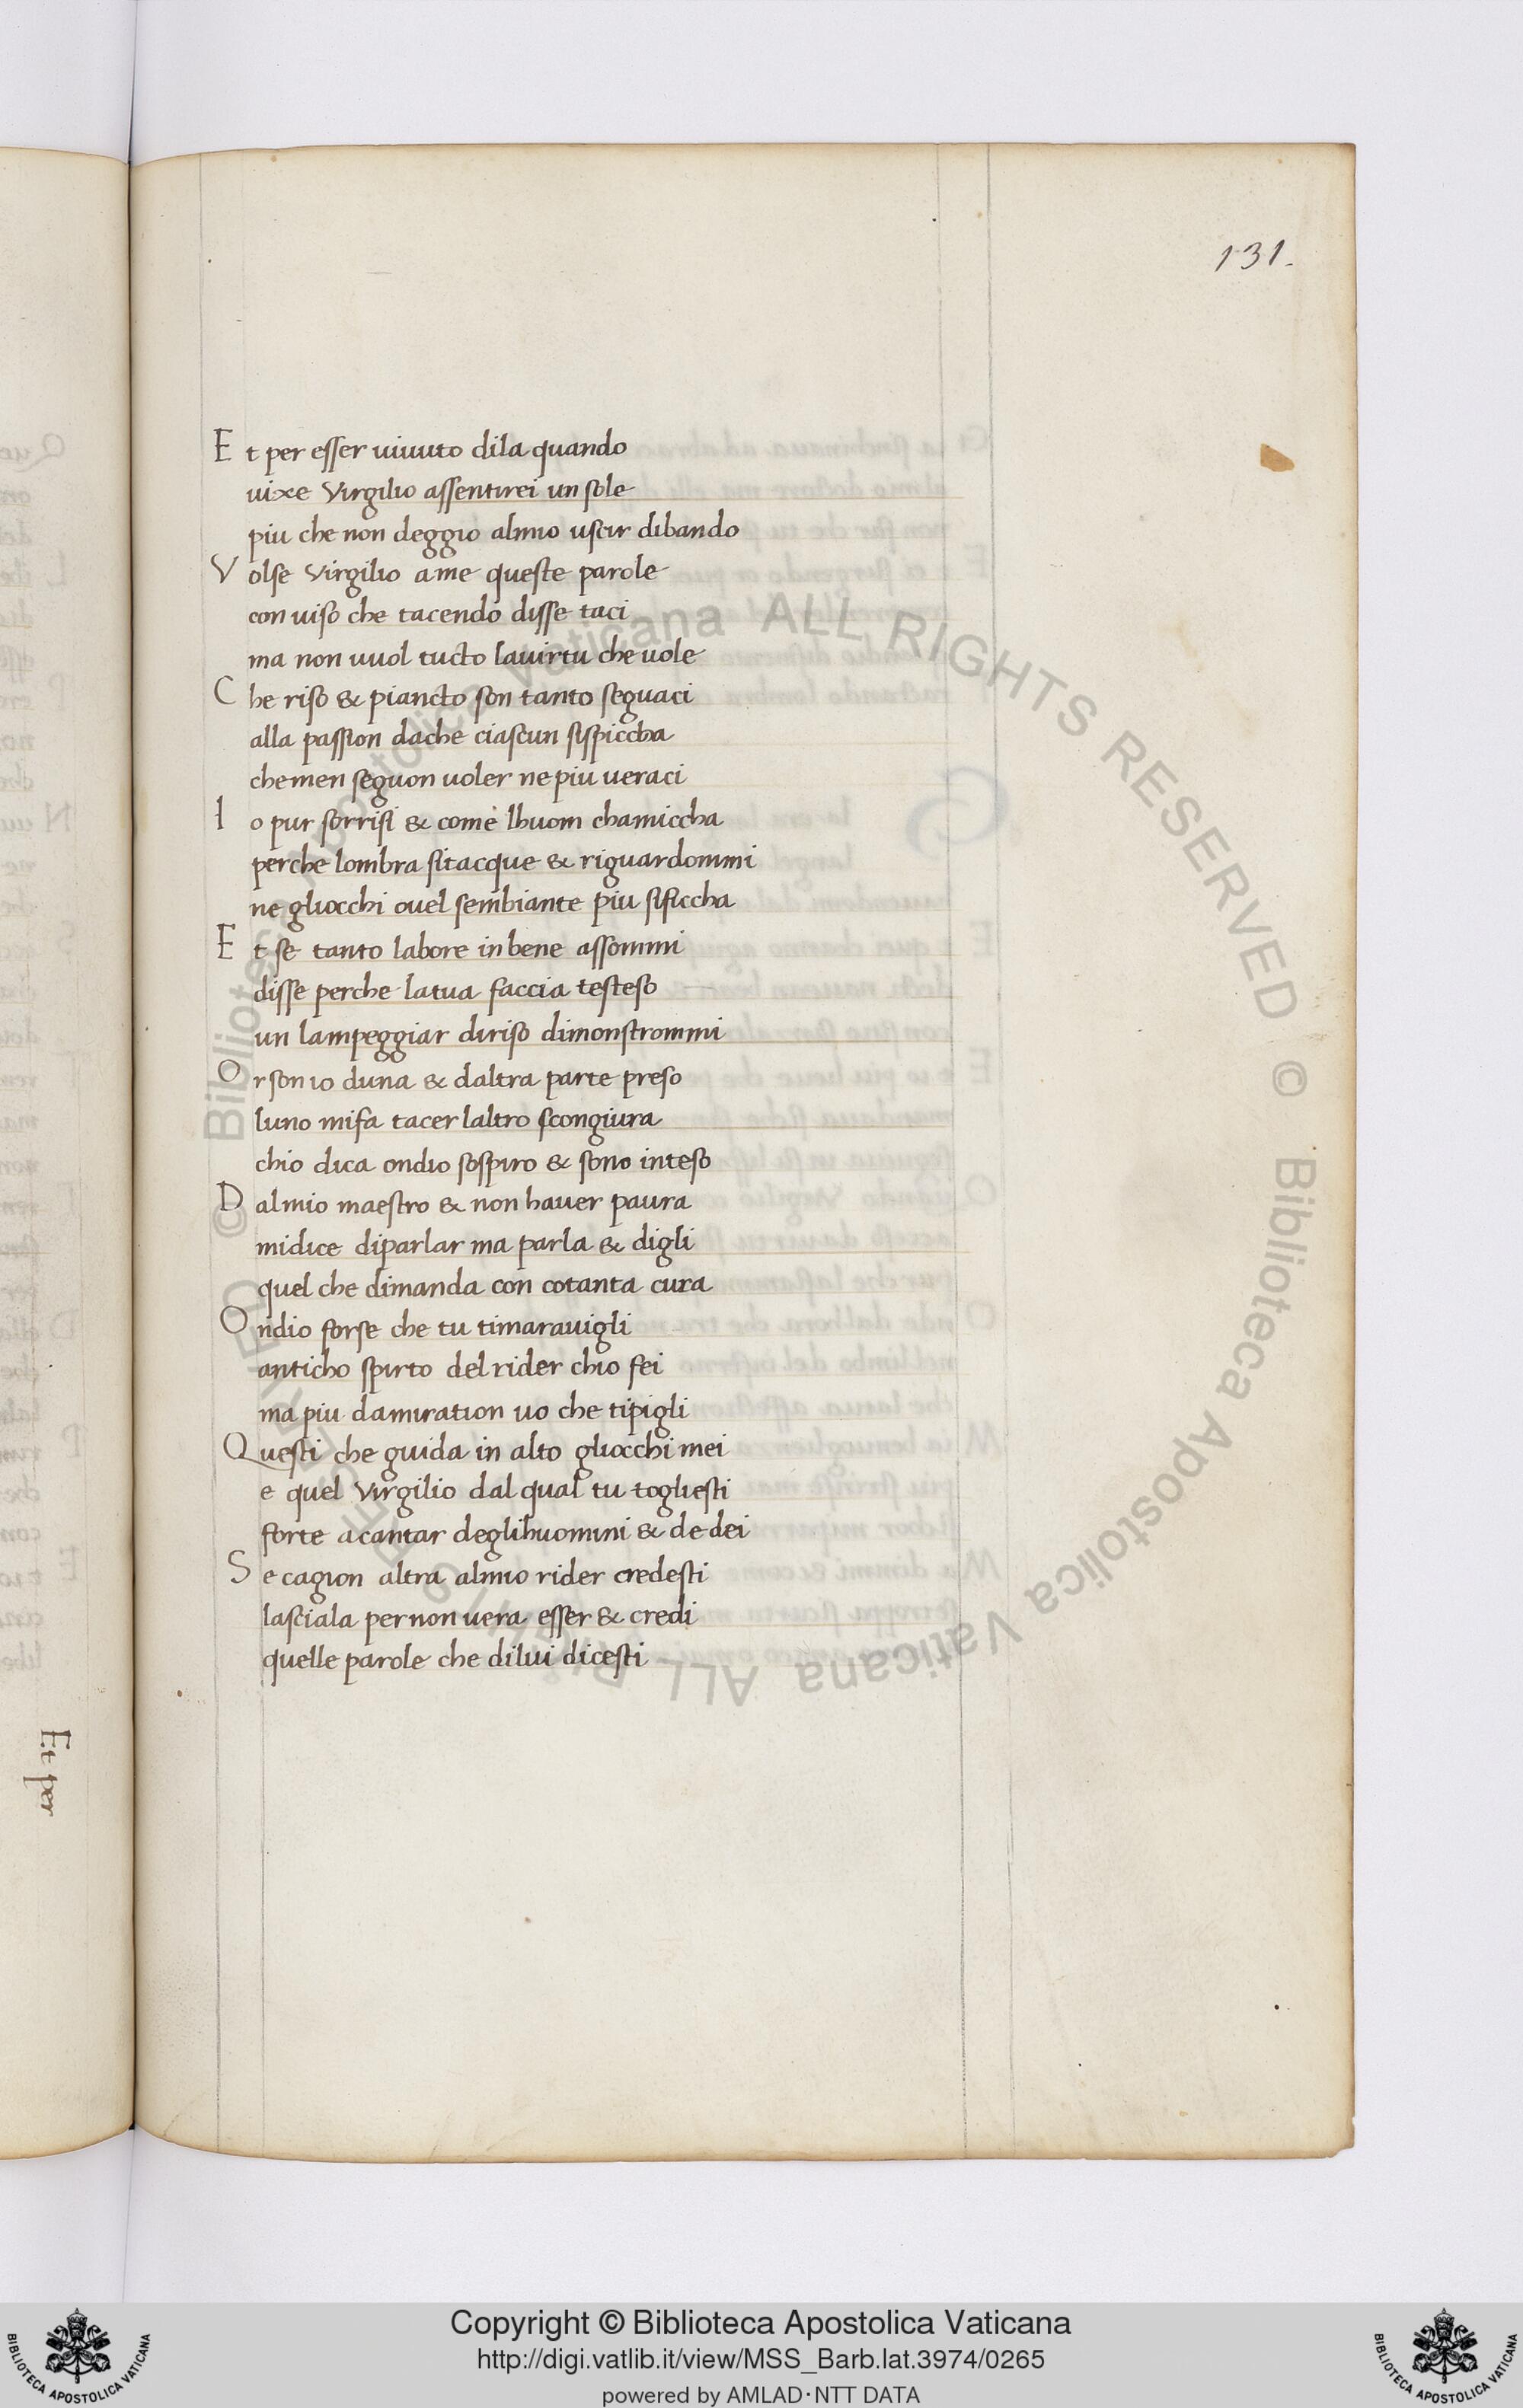 131.
Et per esser uiuuto dila quando
uixe Virgilio assentirei un sole
piu che non deggio almio uscir dibando
Volse Virgilio ame queste parole
con uiso che tacendo disse taci
ma non uuol tucto lauirtu che uole
Che riso & piancto son tanto seguaci
alla passion dache ciascun sispiccha
chemen seguon uoler ne piu ueraci
Io pur sorrisi & come lhuom chamiccha
perche lombra sitacque & riguardommi
ne gliocchi ouel sembiante piu sificcha
Et se tanto labore in bene assommi
disse perche latua faccia testeso
un lampeggiar diriso dimonstrommi
Or son io duna & daltra parte preso
luno mifa tacer laltro scongiura
chio dica ondio sospiro & sono inteso
Dal mio maestro & non hauer paura
midice diparlar ma parla & digli
quel che dimanda con cotanta cura
Ondio forse che tu timarauigli
anticho spirto del rider chio fei
ma piu damiration uo che tipigli
Questi che guida in alto gliocchi mei
e quel Virgilio dal qual tu togliesti
forte acantar deglihuomini & de dei
Se cagion altra almio rider credesti
lasciala per non uera esser & credi
quelle parole che dilui dicesti
Et per
© Biblioteca Apostolica Vaticana ALL RIGHTS RESERVED © Biblioteca Apostolica Vaticana ALL RIGHTS RESERVED
Copyright © Biblioteca Apostolica Vaticana
http://digi.vatlib.it/view/MSS_Barb.lat.3974/0265
powered by AMLAD·NTT DATA
BIBLIOTECA APOSTOLICA VATICANA
BIBLIOTECA APOSTOLICA VATICANA